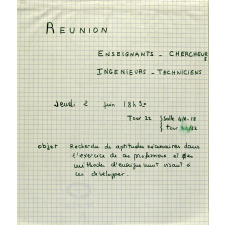 REUNION
ENSEIGNANTS - CHERCHEURS
INGENIEURS - TECHNICIENS
Jeudi 2 juin 18h30
Tour 22 } Salle
} tour
objet Recherche de aptitudes nécessaires dans
l'exercice de ce professeur et
méthode d'enseignement visant à
les développer.